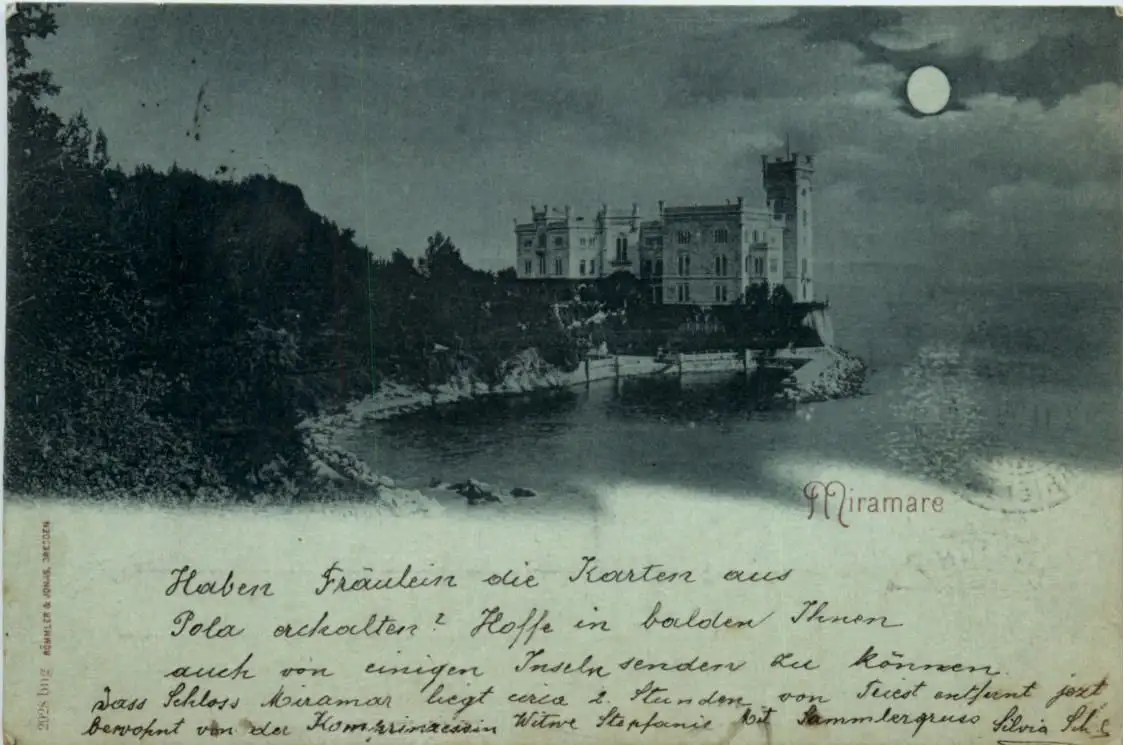 Miramare
2028 bug RÖMMLER & JONAS, DRESDEN
Haben Fräulein die Karten aus
Pola erhalten? Hoffe in balden Ihnen
auch von einigen Inseln senden zu können
Dass Schloss Miramar liegt circa 2 Stunden von Triest entfernt jezt
bewohnt von der Witwe Stephanie Mit Sammlergruss Silvia